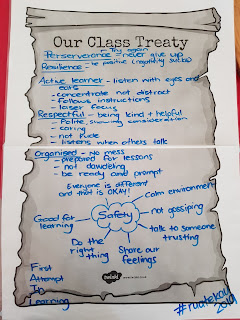 Our Class Treaty
- Try again
Perserverance - never give up
Resilience - be positive (negativity sucks)
Active learner - listen with eyes and
ears
- concentrate not distract
- follows instructions
- laser focus
Respectful - being kind + helpful
- Polite, showing consideration
- caring
- not Rude
- listens when others talk
Organised - No mess
- prepared for lessons
- not dawdling
- be ready and prompt
Everyone is different
and that is OKAY!
calm environment
Good for
learning
Safety
not gossiping
talk to someone
trusting
Do the
right
thing
Share our
feelings
twinkl
First
Attempt
In
Learning
2019